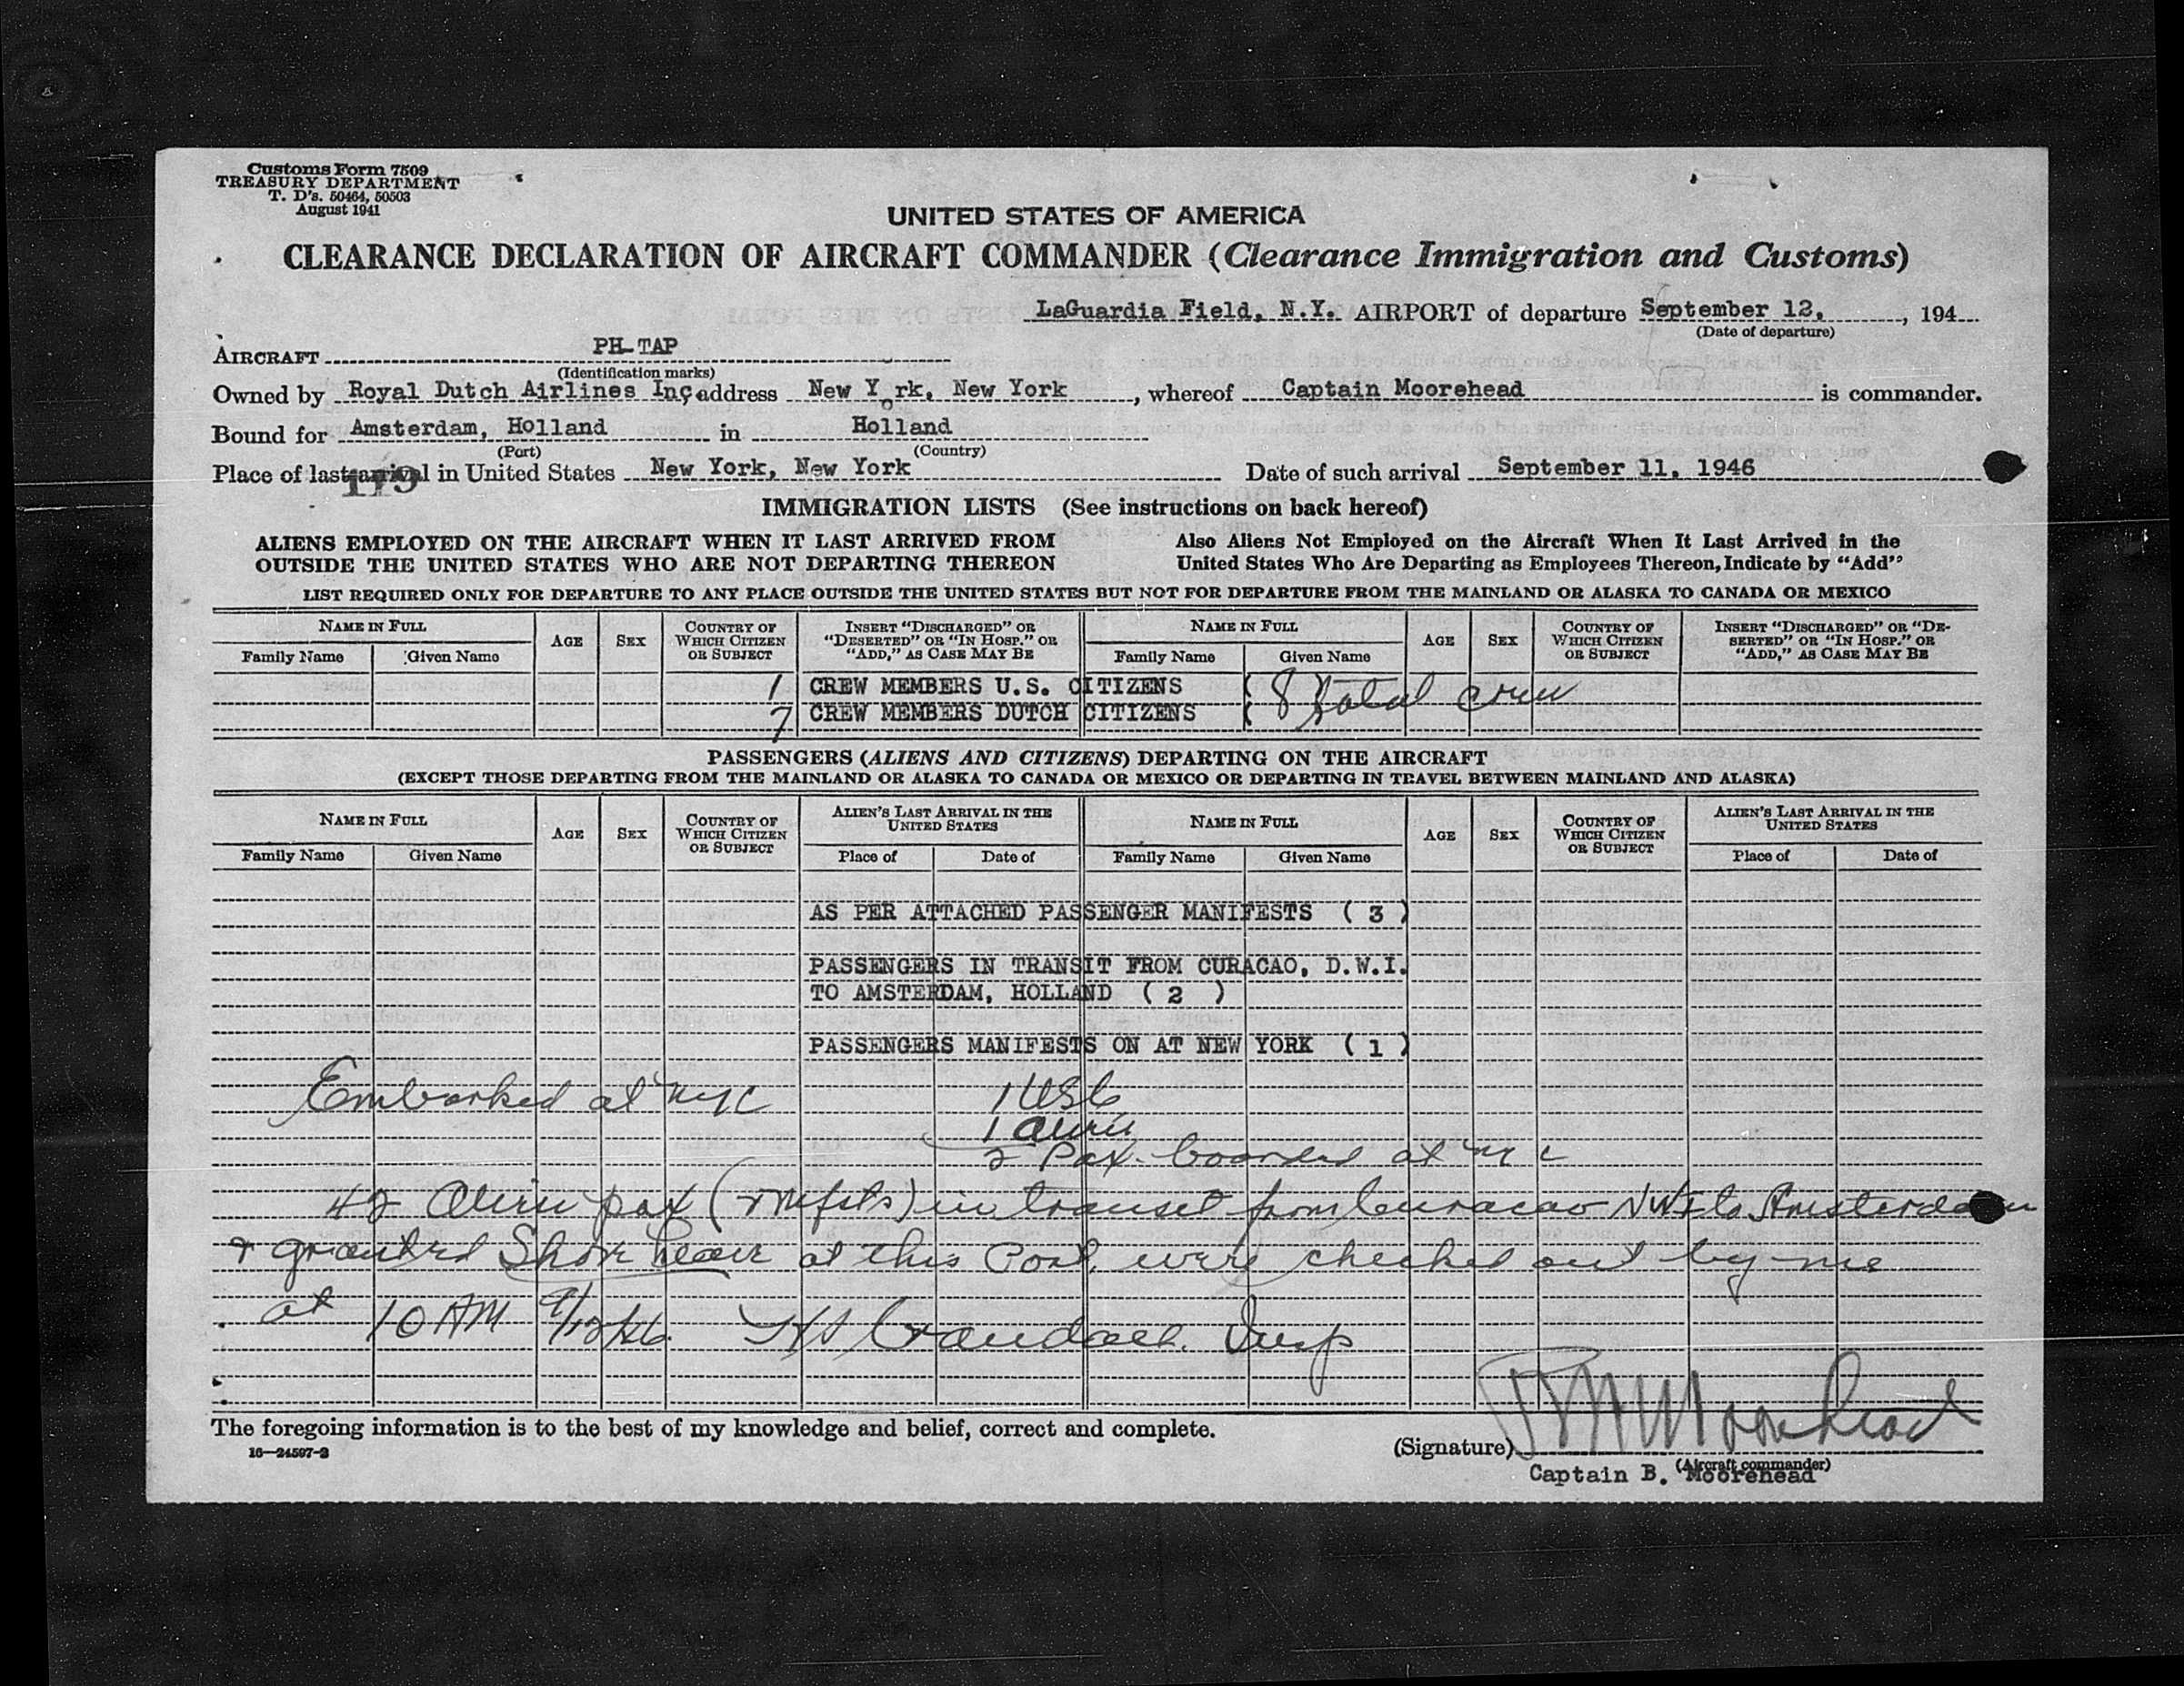 Customs Form 7509
TREASURY DEPARTMENT
T. D's. 50464, 50503
August 1941
UNITED STATES OF AMERICA
CLEARANCE DECLARATION OF AIRCRAFT COMMANDER (Clearance Immigration and Customs)
LaGuardia Field, N.Y. AIRPORT of departure September 12, , 194
(Date of departure)
AIRCRAFT PH-TAP
(Identification marks)
Owned by Royal Dutch Airlines Inc address New Y rk, New York , whereof Captain Moorehead is commander.
o
Bound for Amsterdam, Holland in Holland
(Port) (Country)
Place of last arrival in United States New York, New York Date of such arrival September 11, 1946
179
IMMIGRATION LISTS (See instructions on back hereof)
ALIENS EMPLOYED ON THE AIRCRAFT WHEN IT LAST ARRIVED FROM Also Aliens Not Employed on the Aircraft When It Last Arrived in the
OUTSIDE THE UNITED STATES WHO ARE NOT DEPARTING THEREON United States Who Are Departing as Employees Thereon, Indicate by "Add"
LIST REQUIRED ONLY FOR DEPARTURE TO ANY PLACE OUTSIDE THE UNITED STATES BUT NOT FOR DEPARTURE FROM THE MAINLAND OR ALASKA TO CANADA OR MEXICO
NAME IN FULL AGE SEX COUNTRY OF WHICH CITIZEN OR SUBJECT INSERT "DISCHARGED" OR "DESERTED" OR "IN HOSP." OR "ADD," AS CASE MAY BE NAME IN FULL AGE SEX COUNTRY OF WHICH CITIZEN OR SUBJECT INSERT "DISCHARGED" OR "DE-SERTED" OR "IN HOSP." OR "ADD," AS CASE MAY BE
Family Name Given Name Family Name Given Name
1 CREW MEMBERS U.S. CITIZENS ( 8 total crew
7 CREW MEMBERS DUTCH CITIZENS (
PASSENGERS (ALIENS AND CITIZENS) DEPARTING ON THE AIRCRAFT
(EXCEPT THOSE DEPARTING FROM THE MAINLAND OR ALASKA TO CANADA OR MEXICO OR DEPARTING IN TRAVEL BETWEEN MAINLAND AND ALASKA)
NAME IN FULL AGE SEX COUNTRY OF WHICH CITIZEN OR SUBJECT ALIEN'S LAST ARRIVAL IN THE UNITED STATES NAME IN FULL AGE SEX COUNTRY OF WHICH CITIZEN OR SUBJECT ALIEN'S LAST ARRIVAL IN THE UNITED STATES
Family Name Given Name Place of Date of Family Name Given Name Place of Date of
AS PER ATTACHED PASSENGER MANIFESTS ( 3 )
PASSENGERS IN TRANSIT FROM CURACAO, D.W.I.
TO AMSTERDAM, HOLLAND ( 2 )
PASSENGERS MANIFESTS ON AT NEW YORK ( 1 )
Embarked at NYC 1 USC
1 alien
2 Pax. boarded at NYC
42 Alien pax (2 mfsts) in transit from Curacao NWI to Amsterdam
& granted Shore Leave at this Port, were checked out by me
at 10 AM 9/12/46. Crandall. Insp
The foregoing information is to the best of my knowledge and belief, correct and complete.
16—24597-2
(Signature) Moorehead
(Aircraft commander)
Captain B. Moorehead